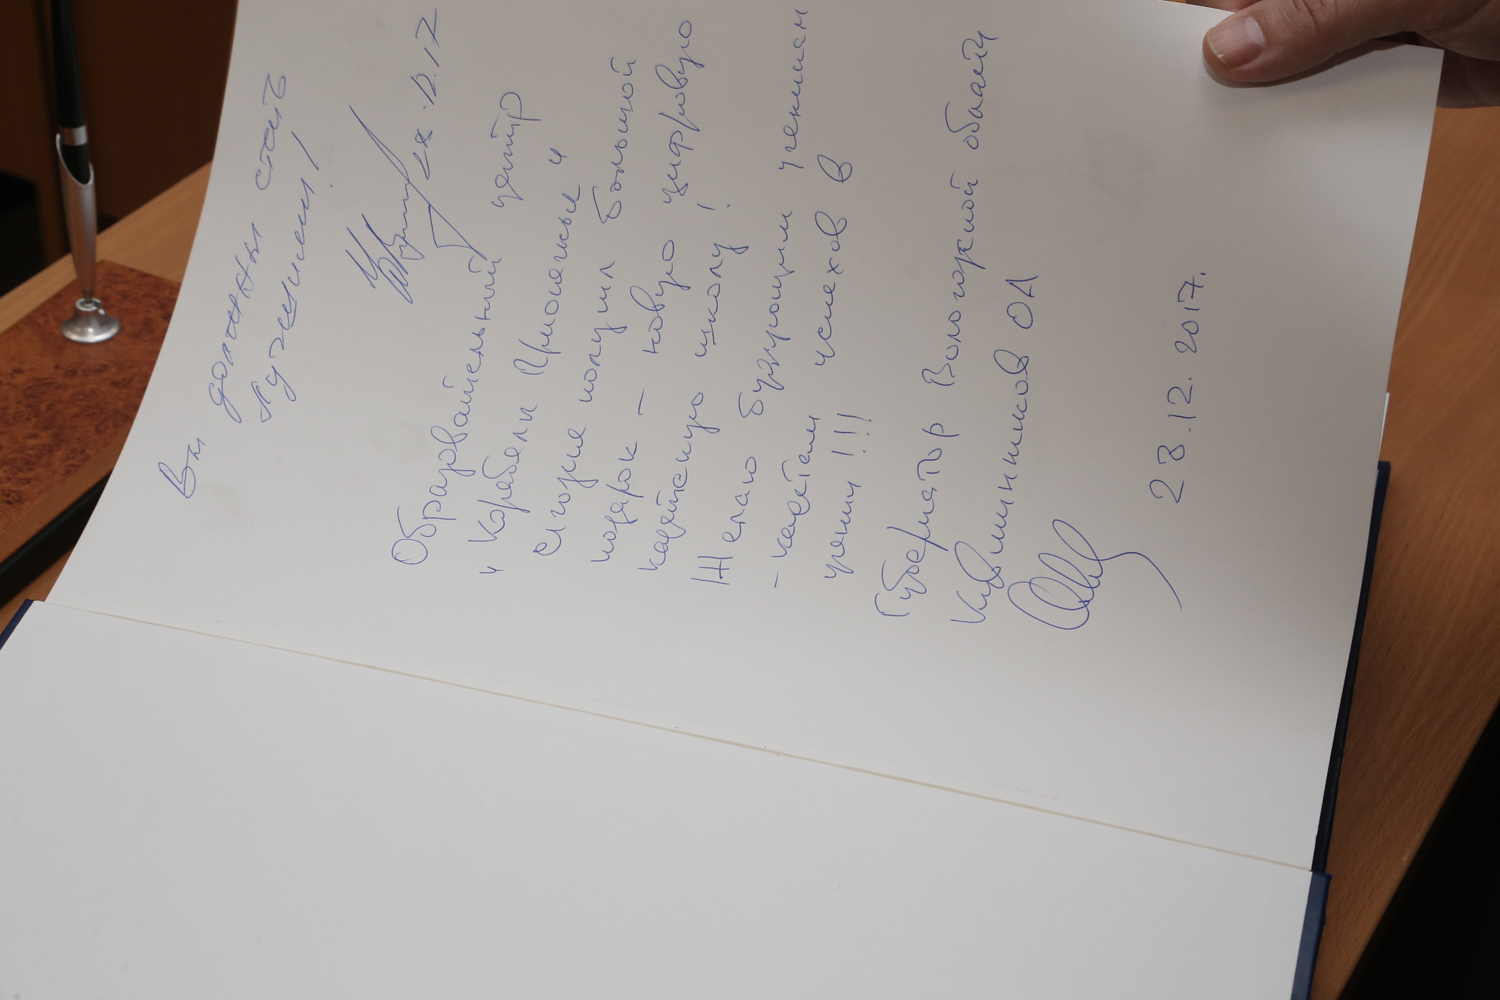 Вы должны стать
лучшими!
28.12.17
Образовательный центр
"Корабелы Прионежья"
сегодня получил большой
подарок – новую цифровую
кадетскую школу!
Желаю будующим ученикам
- кадетам успехов в
учении!!!
Губернатор Вологодской области
Кувшинников ОА
28.12.2017.